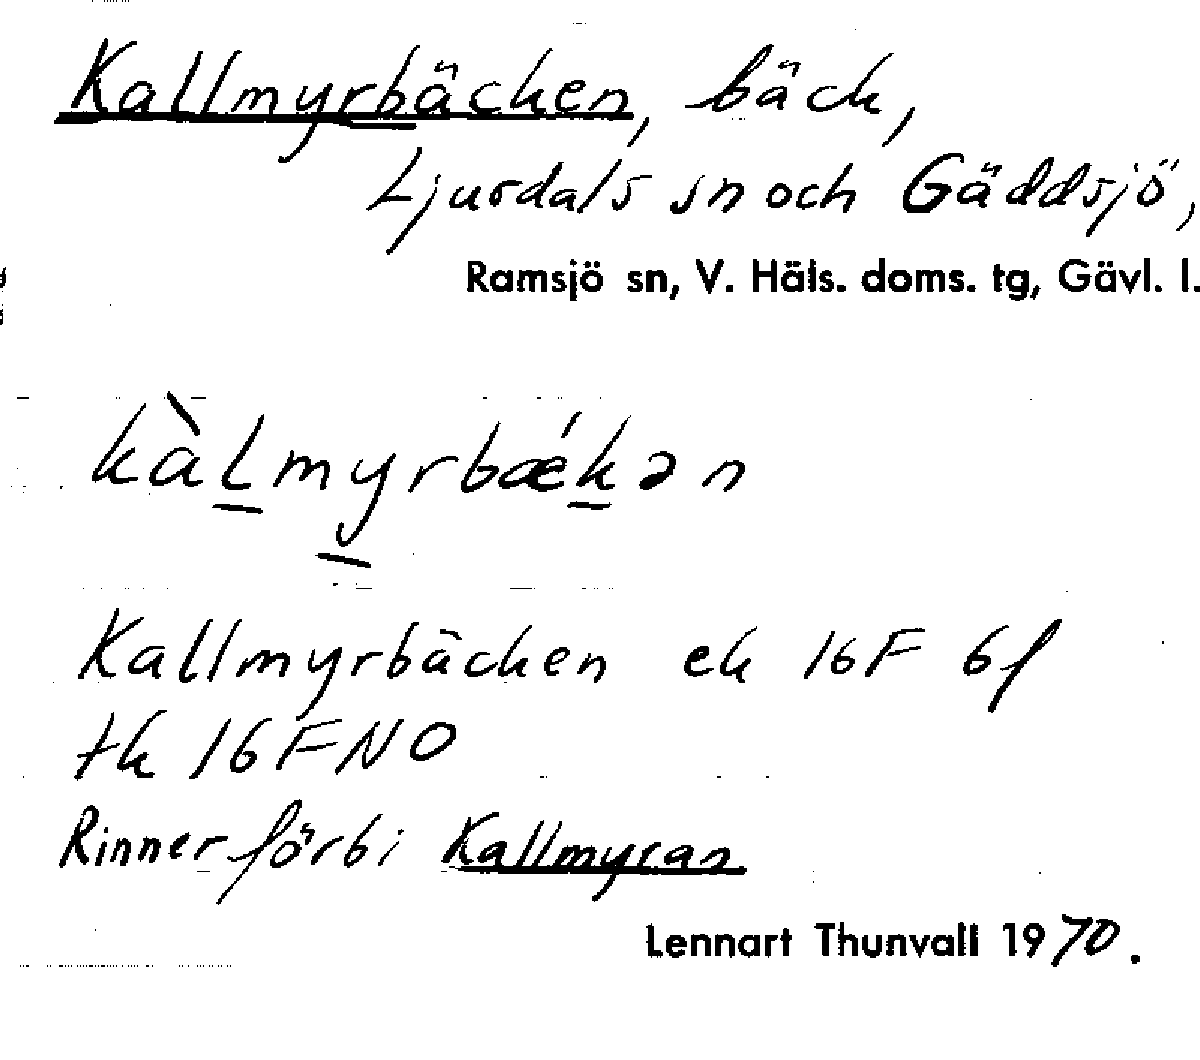 Kallmyrbäcken, bäck,
Ljusdals sn och Gäddsjö,
Ramsjö sn, V. Häls. doms. tg, Gävl. l.
kàlmyrbǽkən
Kallmyrbäcken ek 16F 6f
tk 16FNO
Rinner förbi Kallmyran
Lennart Thunvall 1970.